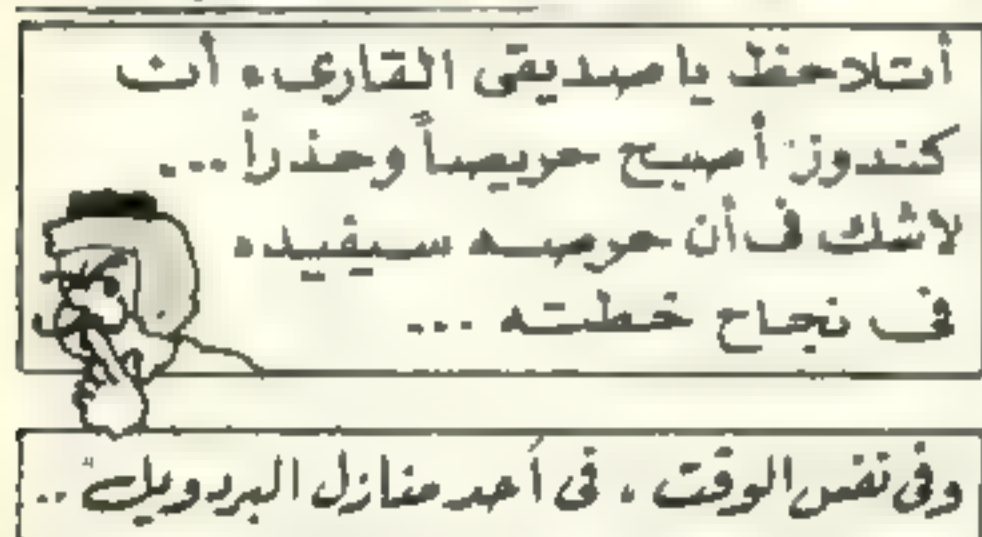 أتلاحظ يا صديقى القارىء أن
كندوز أصبح حريصاً وحذراً ...
لاشك فى أن حرصه سيفيده
فى نجاح خطته ...
وفى نفس الوقت ، فى أحد منازل البردويل" ..